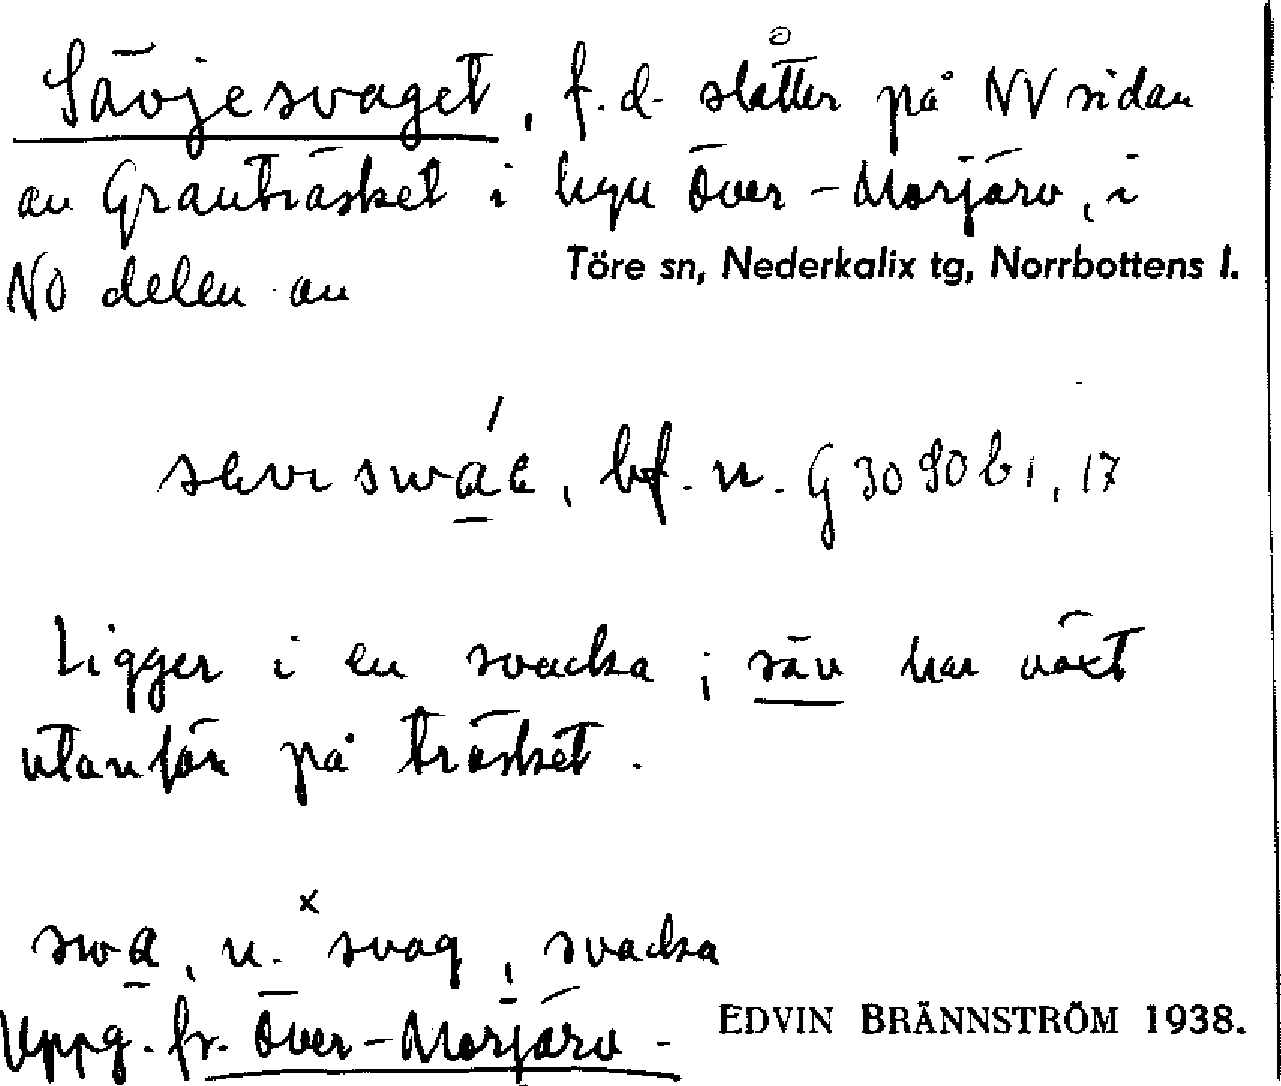 Sävjesvaget, f.d. slåtter på NV sidan
av Granträsket i byn Över-Morjärv, i
NO delen av Töre sn, Nederkalix tg, Norrbottens l.
bf. n. G 3090 b 1, 17
Ligger i en svacka; säv har växt
utanför på träsket.
swa, n. ˣsvag, svacka
Uppg. fr. Över-Morjärv.
EDVIN BRÄNNSTRÖM 1938.